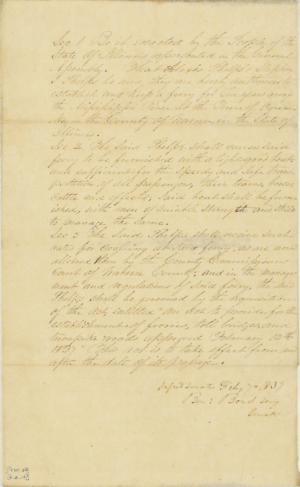 Sec 1 Be it enacted by the People of the
State of Illinois represented in the General
Assembly. That Alexis Phelps & Stephen
S Phelps be and they are hereby authorised to
establish and keep a ferry for ten years over
the Mississippi River at the Town of
in the County of Warren in the State of
Illinois.
Sec 2 The said Phelps shall cause said
ferry to be furnished with a tight good boat
sufficient for the speedy and safe trans
portation of all passengers, their teams, horses
cattle and effects, said boat shall be furn
ished, with men of suitable strength and skill
to manage the same.
Sec 3 The said Phelps shall receive such
rates for crossing at said ferry, as are now
allowed them by the County Commissioners
Court of Warren County, and in the manage
ment and regulations of said ferry, the said
Phelps shall be governed by the
of the Act, entitled An Act to provide for the
establishment of ferries, toll bridges, and
turnpike roads approved February 12th
1827. This act is to take effect from and
after the date of its passage.
Senate Feby 1837
Ben: Bond Secy
Senate